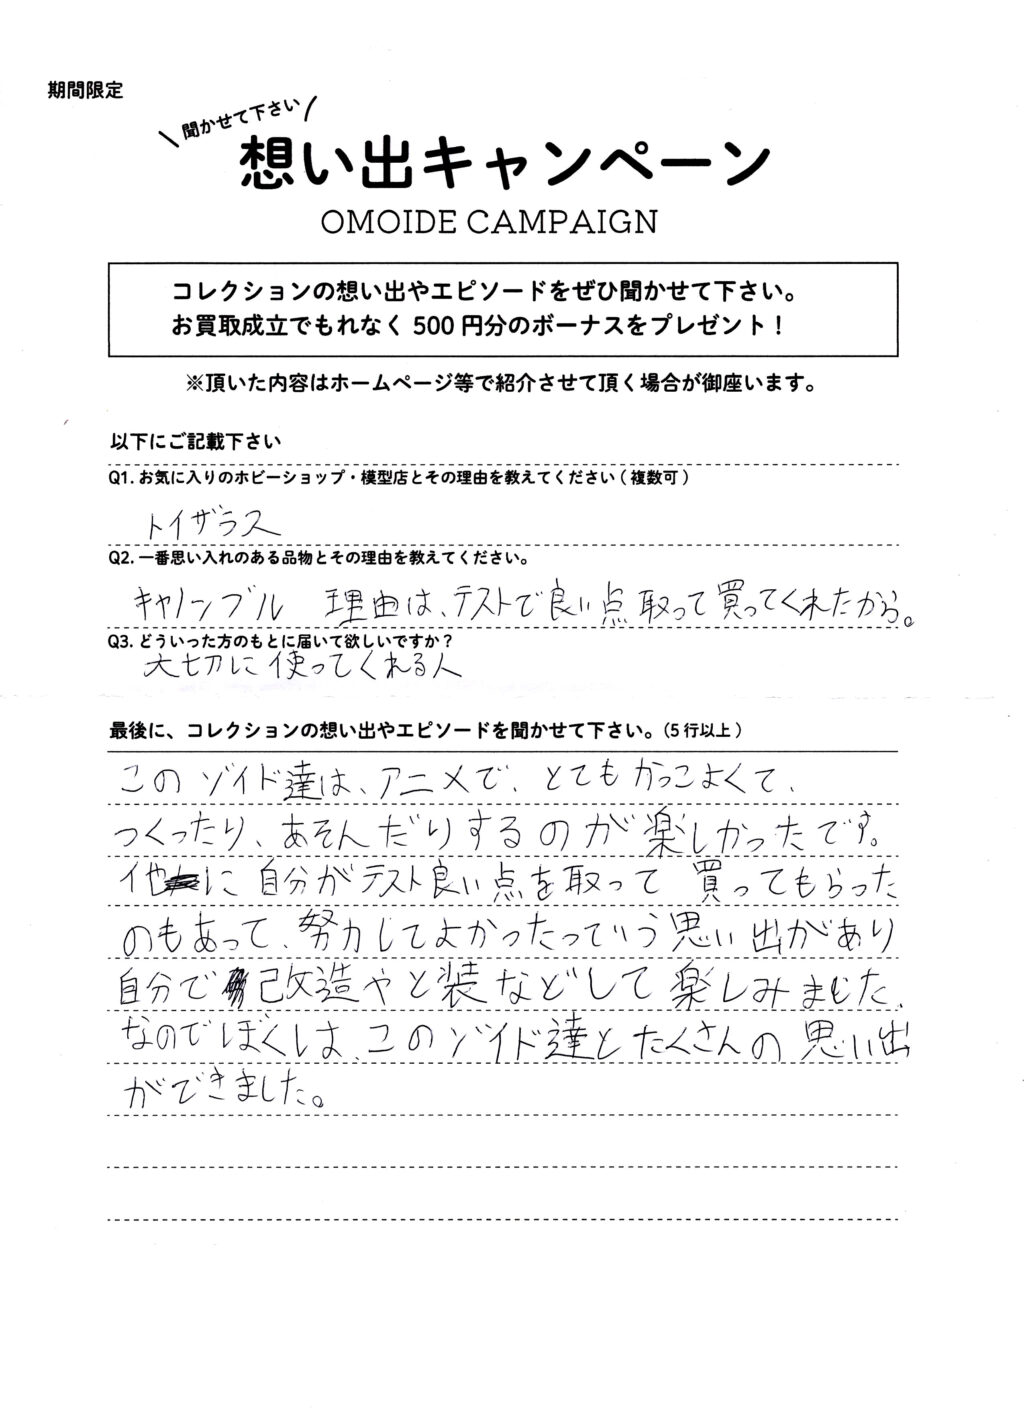 期間限定
聞かせて下さい
想い出キャンペーン
OMOIDE CAMPAIGN
コレクションの想い出やエピソードをぜひ聞かせて下さい。
お買取成立でもれなく 500 円分のボーナスをプレゼント！
※頂いた内容はホームページ等で紹介させて頂く場合が御座います。
以下にご記載下さい
Q1. お気に入りのホビーショップ・模型店とその理由を教えてください ( 複数可 )
トイザラス
Q2. 一番思い入れのある品物とその理由を教えてください。
キャノンブル 理由は、テストで良い点取って買ってくれたから。
Q3. どういった方のもとに届いて欲しいですか？
大切に使ってくれる人
最後に、コレクションの想い出やエピソードを聞かせて下さい。（5 行以上 ）
このゾイド達は、アニメで、とてもかっこよくて、
つくったり、あそんだりするのが楽しかったです。
他に自分がテスト良い点を取って買ってもらった
のもあって、努力してよかったっていう思い出があり
自分で改造やと装などして楽しみました、
なのでぼくしは、このゾイド達とたくさんの思い出
ができました。